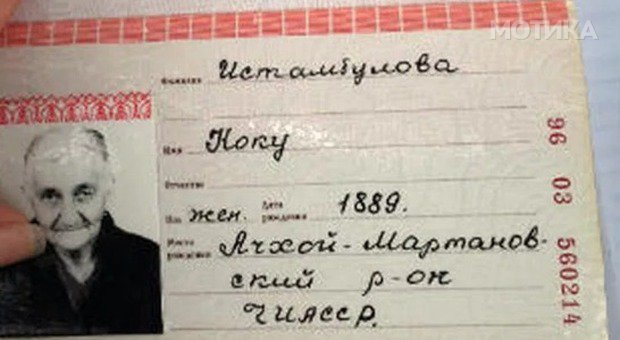 МОТИКА
Фамилия Истамбулова
Имя Коку
Отчество
Пол жен. Дата рождения 1889.
Место рождения Ачхой-Мартанов-
ский р-он
ЧИАССР.
96 03 560214